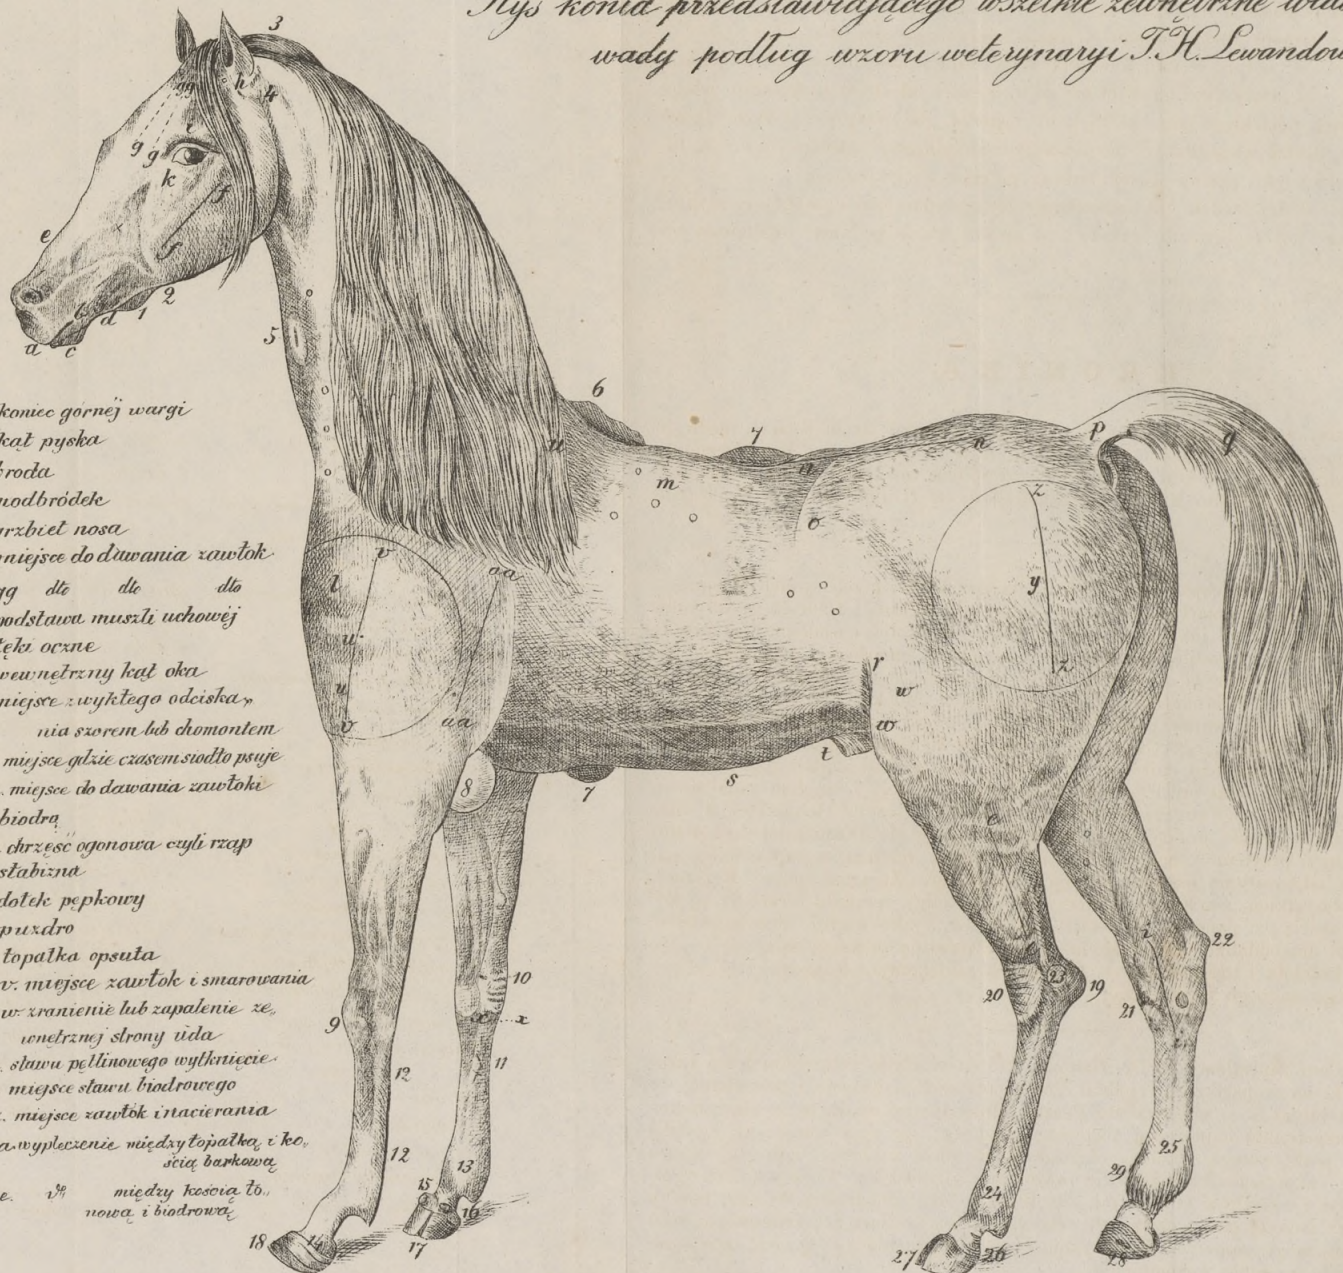 Rys konia przedstawiającego wszelkie zewnętrzne
wady podług wzoru weterynaryi T. H. Lewandow
3
h
4
gg
i
g g
k
f
e
f
b
2
d
1
a c
5
6
u
7
n
n
p
q
m
o
z
v
aa
l
y
u
z
r
u
w
v
aa
w
t
s
8
7
e
i
22
10
20
23
19
21
x x
9
i
11
12
12
13
25
29
15
16
24
18
14
17
27
26
28
koniec górnéj wargi
kąt pyska
broda
podbródek
grzbiet nosa
miejsce do dawania zawłok
gg dto dto dto
podstawa muszli uchowéj
łęki oczne
wewnętrzny kąt oka
miejsce zwykłego odciska„
nia szorem lub chomontem
miejsce gdzie czasem siodło psuje
miejsce do dawania zawłoki
biodrą
chrzęść ogonowa czyli rząp
słabizna
dołek pępkowy
puzdro
łopatka opsuta
v. miejsce zawłok i smarowania
w. zranienie lub zapalenie ze„
wnętrznej strony uda
stawu pętlinowego wytknięcie
miejsce stawu biodrowego
z. miejsce zawłok i nacierania
a. wypleczenie między łopatką i ko„
ścią barkową
e. między kością ło„
nową i biodrową